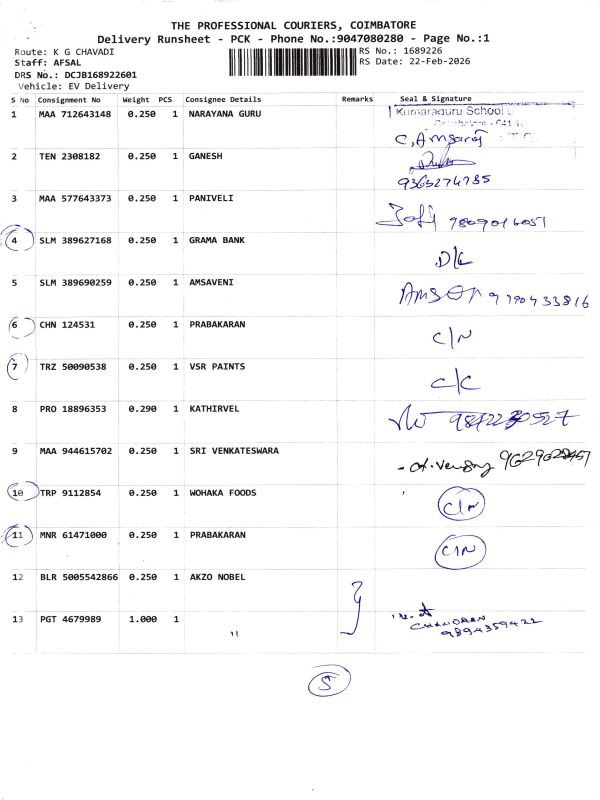 THE PROFESSIONAL COURIERS, COIMBATORE
Delivery Runsheet - PCK - Phone No.:9047080280 - Page No.:1
Route: K G CHAVADI
RS No.: 1689226
Staff: AFSAL
RS Date: 22-Feb-2026
DRS No.: DCJB168922601
Vehicle: EV Delivery
S No Consignment No Weight PCS Consignee Details Remarks Seal & Signature
1 MAA 712643148 0.250 1 NARAYANA GURU Kumaraguru School
2 TEN 2308182 0.250 1 GANESH
9365274785
3 MAA 577643373 0.250 1 PANIVELI 9809016051
4 SLM 389627168 0.250 1 GRAMA BANK D/L
5 SLM 389690259 0.250 1 AMSAVENI 9790433816
6 CHN 124531 0.250 1 PRABAKARAN C/N
7 TRZ 50090538 0.250 1 VSR PAINTS C/C
8 PRO 18896353 0.290 1 KATHIRVEL
9 MAA 944615702 0.250 1 SRI VENKATESWARA
10 TRP 9112854 0.250 1 WOHAKA FOODS C/N
11 MNR 61471000 0.250 1 PRABAKARAN C/N
12 BLR 5005542866 0.250 1 AKZO NOBEL
13 PGT 4679989 1.000 1 " CHANDRAN
9894359422
5